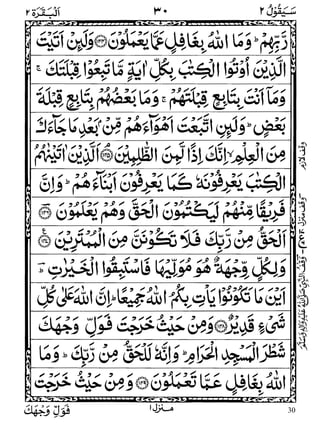 سَيَقُوْلُ ٢ ٣٠ اَلْبَقَرَة ٢
رَّبِّهِمْ ؕ وَمَا اللّٰهُ بِغَافِلٍ عَمَّا يَعْمَلُوْنَ ﴿۱۴۴﴾ وَلَىِٕنْ اَتَيْتَ
الَّذِيْنَ اُوْتُوا الْكِتٰبَ بِكُلِّ اٰيَةٍ مَّا تَبِعُوْا قِبْلَتَكَ ۚ
وَمَاۤ اَنْتَ بِتَابِعٍ قِبْلَتَهُمْ ۚ وَمَا بَعْضُهُمْ بِتَابِعٍ قِبْلَةَ
بَعْضٍ ؕ وَلَىِٕنِ اتَّبَعْتَ اَهْوَآءَهُمْ مِّنْۢ بَعْدِ مَا جَآءَكَ
مِنَ الْعِلْمِ ۙ اِنَّكَ اِذًا لَّمِنَ الظّٰلِمِيْنَ ﴿۱۴۵﴾ اَلَّذِيْنَ اٰتَيْنٰهُمُ
الْكِتٰبَ يَعْرِفُوْنَهٗ كَمَا يَعْرِفُوْنَ اَبْنَآءَهُمْ ؕ وَاِنَّ
فَرِيْقًا مِّنْهُمْ لَيَكْتُمُوْنَ الْحَقَّ وَهُمْ يَعْلَمُوْنَ ﴿۱۴۶﴾
اَلْحَقُّ مِنْ رَّبِّكَ فَلَا تَكُوْنَنَّ مِنَ الْمُمْتَرِيْنَ ﴿۱۴۷﴾
وَلِكُلٍّ وِّجْهَةٌ هُوَ مُوَلِّيْهَا فَاسْتَبِقُوا الْخَيْرٰتِ ؕ
اَيْنَ مَا تَكُوْنُوْا يَاْتِ بِكُمُ اللّٰهُ جَمِيْعًا ؕ اِنَّ اللّٰهَ عَلٰى كُلِّ
شَىْءٍ قَدِيْرٌ ﴿۱۴۸﴾ وَمِنْ حَيْثُ خَرَجْتَ فَوَلِّ وَجْهَكَ
شَطْرَ الْمَسْجِدِ الْحَرَامِ ؕ وَاِنَّهٗ لَلْحَقُّ مِنْ رَّبِّكَ ؕ وَمَا
اللّٰهُ بِغَافِلٍ عَمَّا تَعْمَلُوْنَ ﴿۱۴۹﴾ وَمِنْ حَيْثُ خَرَجْتَ
فَوَلِّ وَجْهَكَ منزل ١ 30
وقف لازم